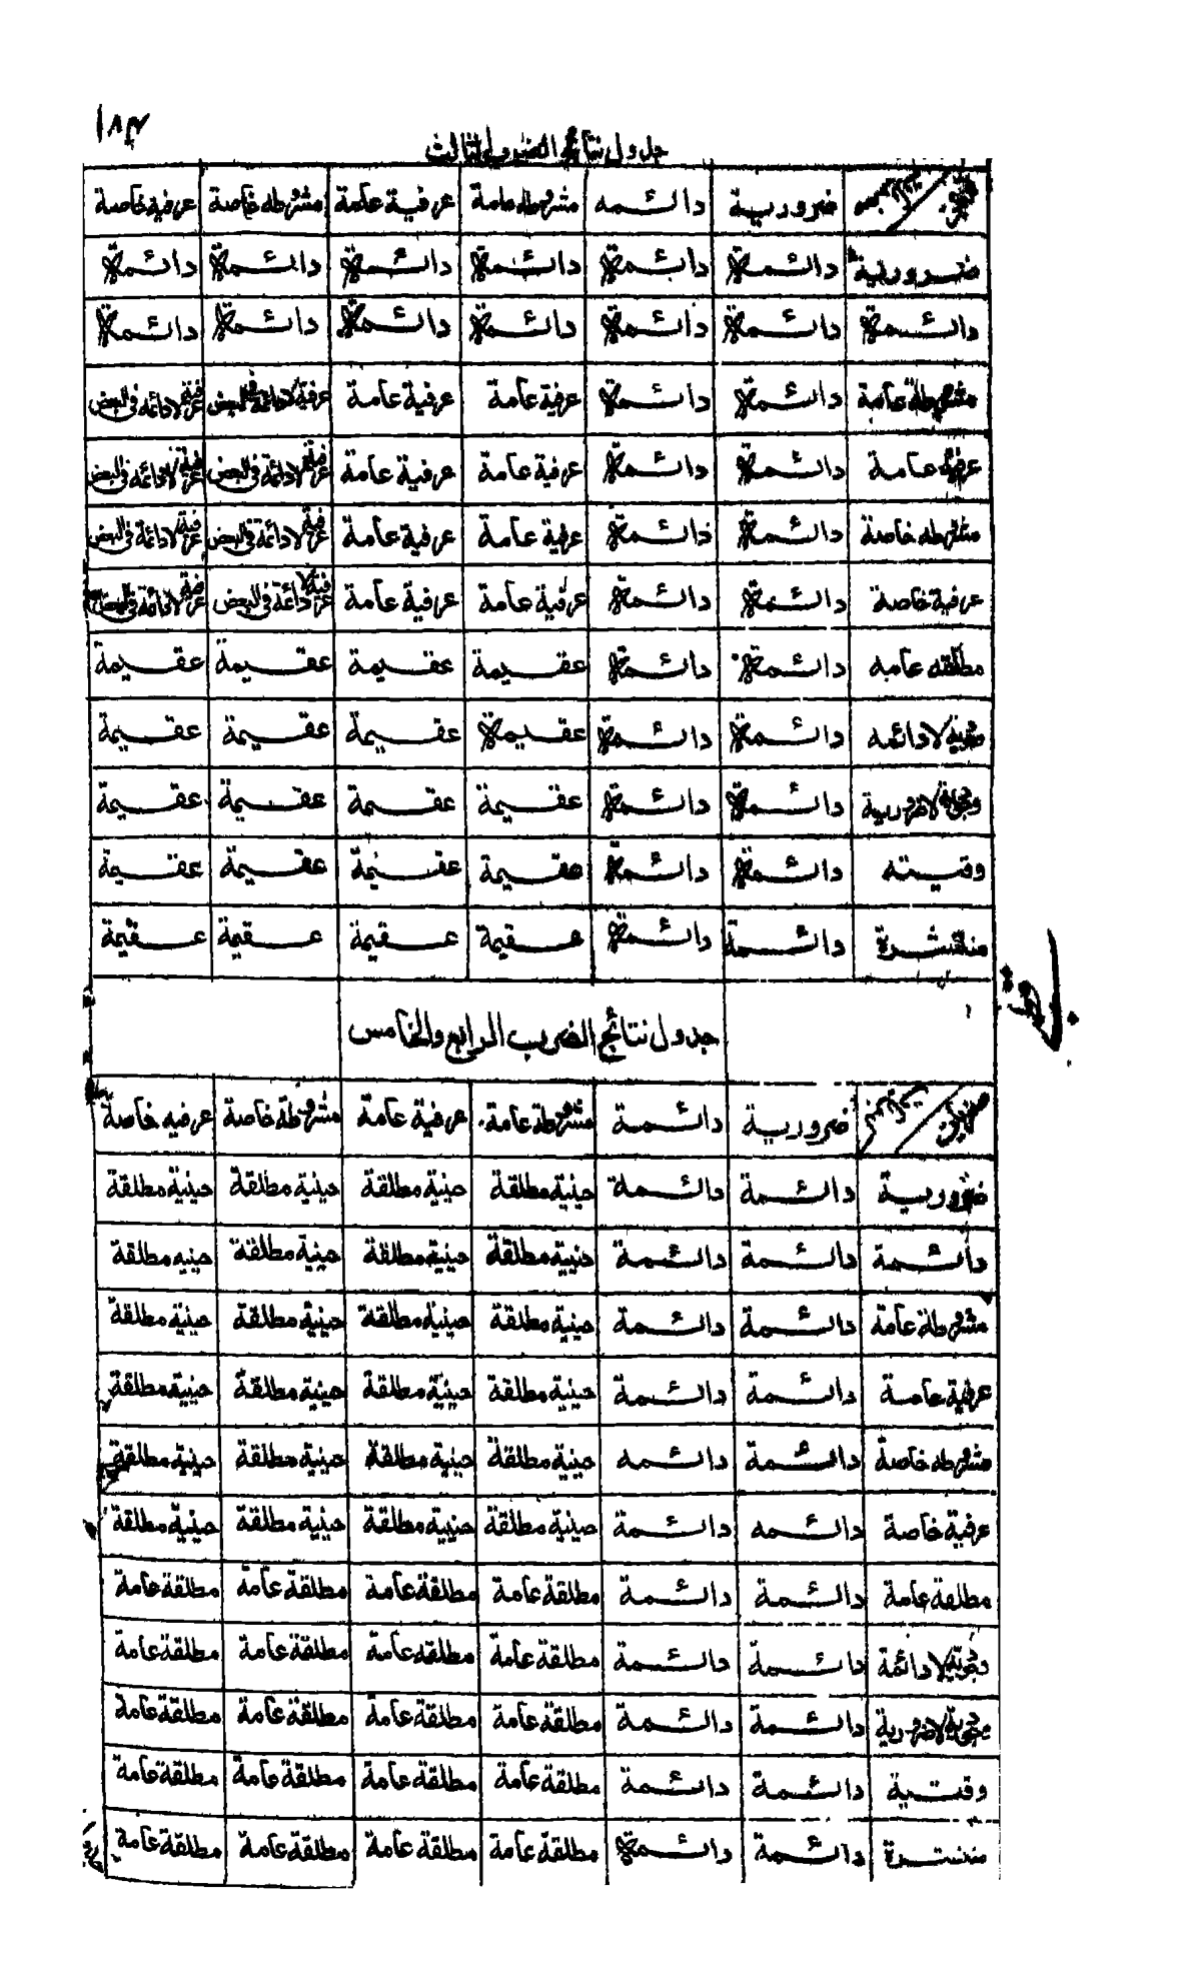 ١٨٣
جدول نتائج الضرب الثالث
ضرورية دائمه مشروطه عامة عرفية عامة مشروطه خاصة عرفيه خاصة
ضرورية دائمة دائمة دائمة دائمة دائمة دائمة
دائمة دائمة دائمة دائمة دائمة دائمة دائمة
مشروطة عامة دائمة دائمة عرفية عامة عرفية عامة عرفية لادائمة في البعض عرفية لادائمة في البعض
عرفية عامة دائمة دائمة عرفية عامة عرفية عامة عرفية لادائمة في البعض عرفية لادائمة في البعض
مشروطه خاصة دائمة دائمة عرفية عامة عرفية عامة عرفية لادائمة في البعض عرفية لادائمة في البعض
عرفية خاصة دائمة دائمة عرفية عامة عرفية عامة عرفية لادائمة في البعض عرفية لادائمة في البعض
مطلقه عامه دائمة دائمة عقيمة عقيمة عقيمة عقيمة
وجودية لادائمه دائمة دائمة عقيمة عقيمة عقيمة عقيمة
وجودية لاضرورية دائمة دائمة عقيمة عقيمة عقيمة عقيمة
وقتيته دائمة دائمة عقيمة عقيمة عقيمة عقيمة
منتشرة دائمة دائمة عقيمة عقيمة عقيمة عقيمة
جدول نتائج الضرب الرابع والخامس
ضرورية دائمة مشروطة عامة عرفية عامة مشروطة خاصة عرفيه خاصة
ضرورية دائمة دائمة حينية مطلقة حينية مطلقة حينية مطلقة حينية مطلقة
دائمة دائمة دائمة حينية مطلقة حينية مطلقة حينية مطلقة حينيه مطلقة
مشروطة عامة دائمة دائمة حينية مطلقة حينية مطلقة حينية مطلقة حينية مطلقة
عرفية عامة دائمة دائمة حينية مطلقة حينية مطلقة حينية مطلقة حينية مطلقة
مشروطه خاصة دائمة دائمه حينية مطلقة حينية مطلقة حينية مطلقة حينية مطلقة
عرفية خاصة دائمه دائمة حينية مطلقة حينية مطلقة حينية مطلقة حينية مطلقة
مطلقة عامة دائمة دائمة مطلقة عامة مطلقة عامة مطلقة عامة مطلقة عامة
وجودية لادائمة دائمة دائمة مطلقة عامة مطلقه عامة مطلقة عامة مطلقة عامة
وجودية لاضرورية دائمة دائمة مطلقة عامة مطلقة عامة مطلقة عامة مطلقة عامة
وقتية دائمة دائمة مطلقة عامة مطلقة عامة مطلقة عامة مطلقة عامة
منتشرة دائمة دائمة مطلقة عامة مطلقة عامة مطلقة عامة مطلقة عامة